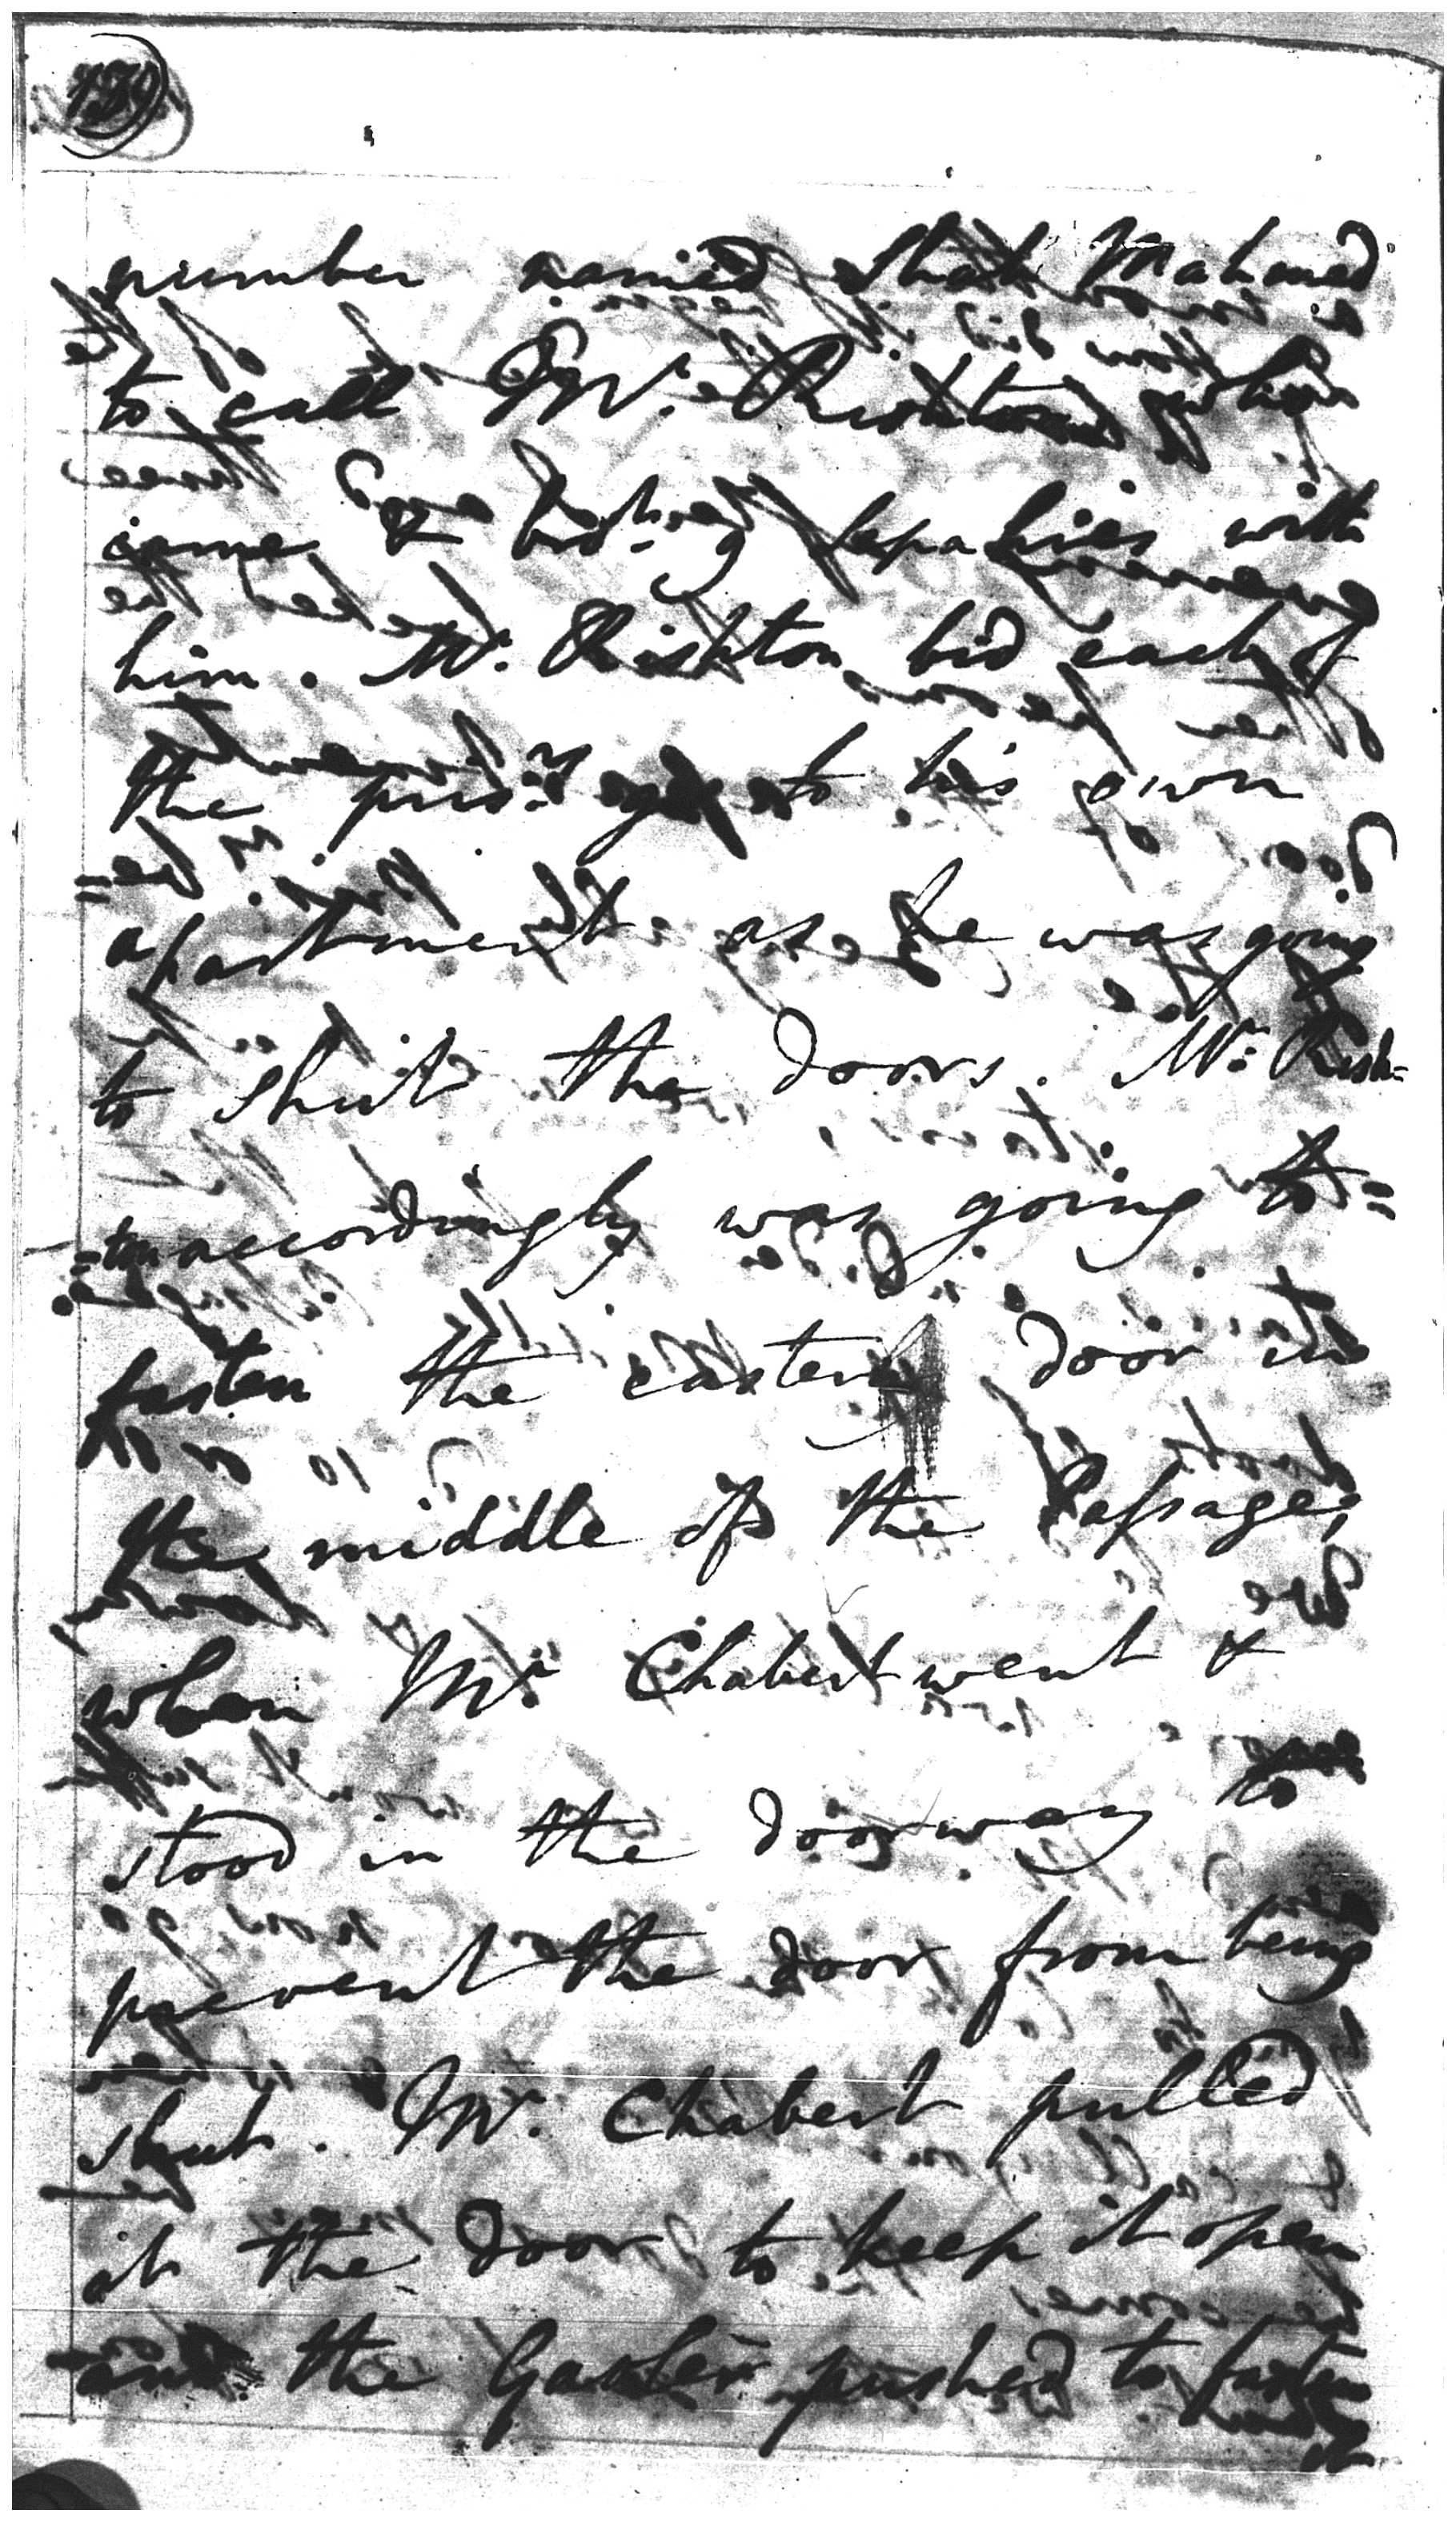 179
number named Shah Mahomed
to call Mr. Rishton who
came & brot. sepahies with
him. Mr. Rishton bid each of
the prisrs. go to his own
apartment as he was going
to shut the doors. Mr. Rish=
=ton accordingly was going to=
fasten the eastern door in
the middle of the Passage,
when Mr. Chabert went &
stood in the doorway to
prevent the door from being
shut. Mr. Chabert pulled
at the door to keep it open
and the Gaoler pushed to fasten
it